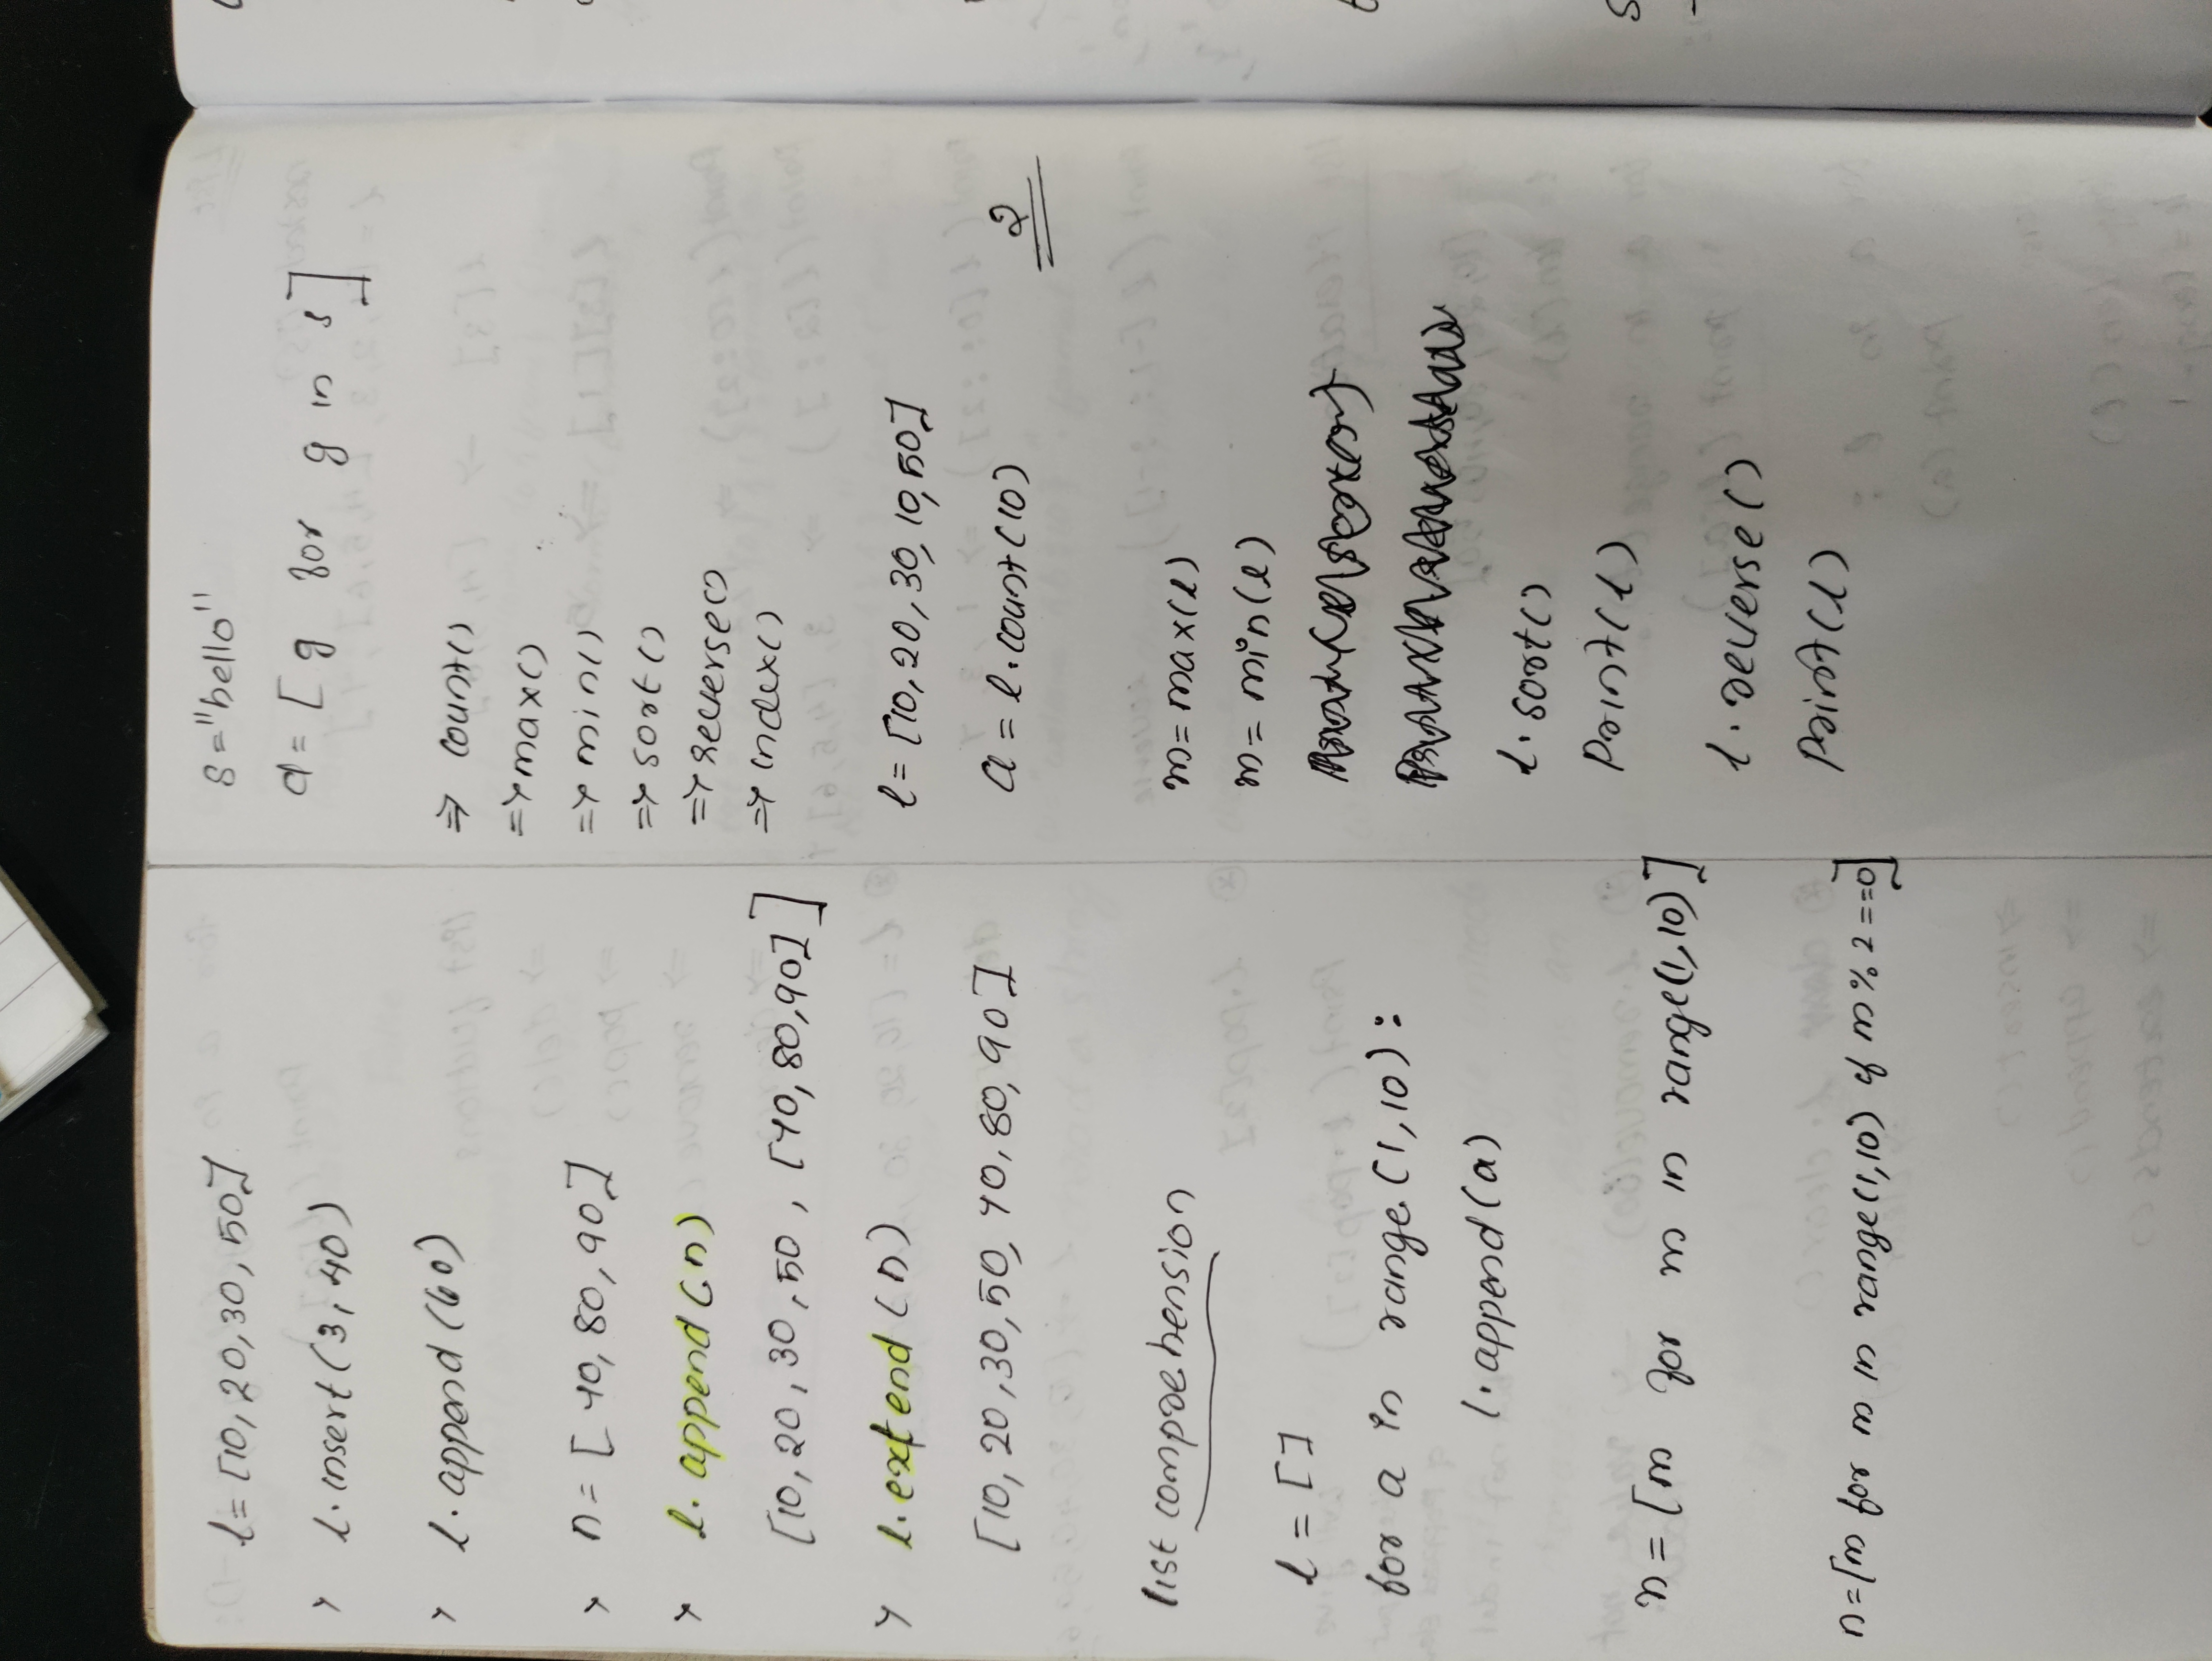 l = [10, 20, 30, 50]
> l.insert(3, 40)
> l.append(60)
> n = [70, 80, 90]
> l.append(n)
[10, 20, 30, 50, [70, 80, 90]]
> l.extend(n)
[10, 20, 30, 50, 70, 80, 90]
list comprehension
l = []
for a in range(1,10):
l.append(a)
n = [m for m in range(1,10)]
n = [m for m in range(1,10) if m % 2 == 0]
s = "hello"
d = [g for g in s]
=> count()
=> max()
=> min()
=> sort()
=> reverse()
=> index()
l = [10, 20, 30, 10, 50]
a = l.count(10) 2
m = max(l)
m = min(l)
l.sort()
Print(l)
l.reverse()
Print(l)